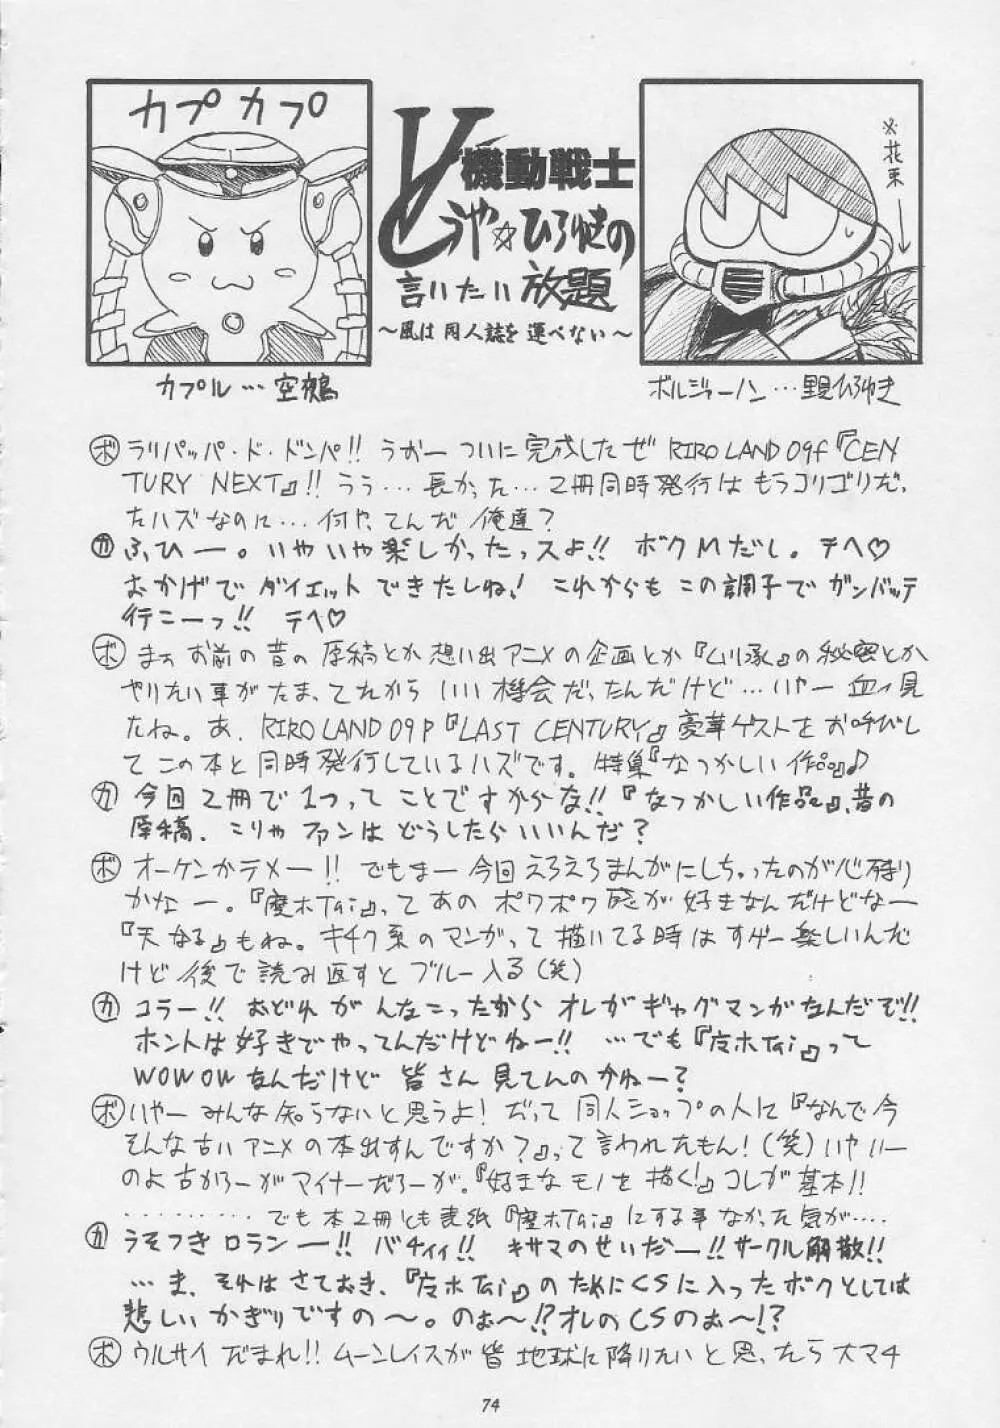 カプカプ
機動戦士
うや☆ひろゆきの
言いたい放題
～風は同人誌を運べない～
※花束
カプル…空鶴
ボルジャーノン…里見ひろゆき
ボ ラリパッパ・ド・ドンパ!! うおーついに完成したぜ RIRO LAND 09f『CEN
TURY NEXT』!! うう…長かった…2冊同時発行はもうコリゴリだっ
たハズなのに…何やってんだ俺達?
カ ふひー。いやいや楽しかったっスよ!! ボクMだし。テヘ♡
おかげでダイエットできたしね! これからもこの調子でガンバッテ
行こーっ!! テヘ♡
ボ まぁお前の昔の原稿とか想い出アニメの企画とか『 』の秘密とか
やりたい事がたまってたからいい機会だったんだけど…いやー血ィ見
たね。あ、RIRO LAND 09P『LAST CENTURY』豪華ゲストをお呼びし
てこの本と同時発行しているハズです。特集『なつかしい作品』♪
カ 今回2冊で1つってことですからな!!『なつかしい作品』、昔の
原稿、こりゃファンはどうしたらいいんだ?
ボ オーケンかテメー!! でもまー今回えろえろまんがにしちゃったのが心残り
かなー。『魔ホTai』ってあのポワポワ感が好きなんだけどなー
『天なる』もね。キチク系のマンガって描いてる時はすげー楽しいんだ
けど後で読み返すとブルー入る(笑)
カ コラー!! おどれがんなこったからオレがギャグマンガなんだぞ!!
ホントは好きでやってんだけどねー!! …でも『魔ホTai』って
WOWOWなんだけど皆さん見てんのかねー?
ボ いやーみんな知らないと思うよ! だって同人ショップの人に『なんで今
そんな古いアニメの本出すんですか?』って言われたもん!(笑) いやいー
のよ古かろーがマイナーだろーが。『好きなモノを描く!』コレが基本!!
………でも本2冊とも表紙『魔ホTai』にする事なかった気が….
カ うそつきロランー!! バチィィ!! キサマのせいだー!! サークル解散!!
…ま、それはさておき、『魔ホTai』のためにCSに入ったボクとしては
悲しいかぎりですの～。のぉ～!? オレのCSのぉ～!?
ボ ウルサイだまれ!! ムーンレイスが皆地球に降りたいと思ったら大マチ
74